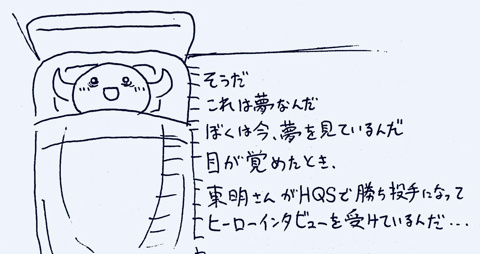 そうだ
これは夢なんだ
ぼくは今、夢を見ているんだ
目が覚めたとき、
東明さんがHQSで勝ち投手になって
ヒーローインタビューを受けているんだ…